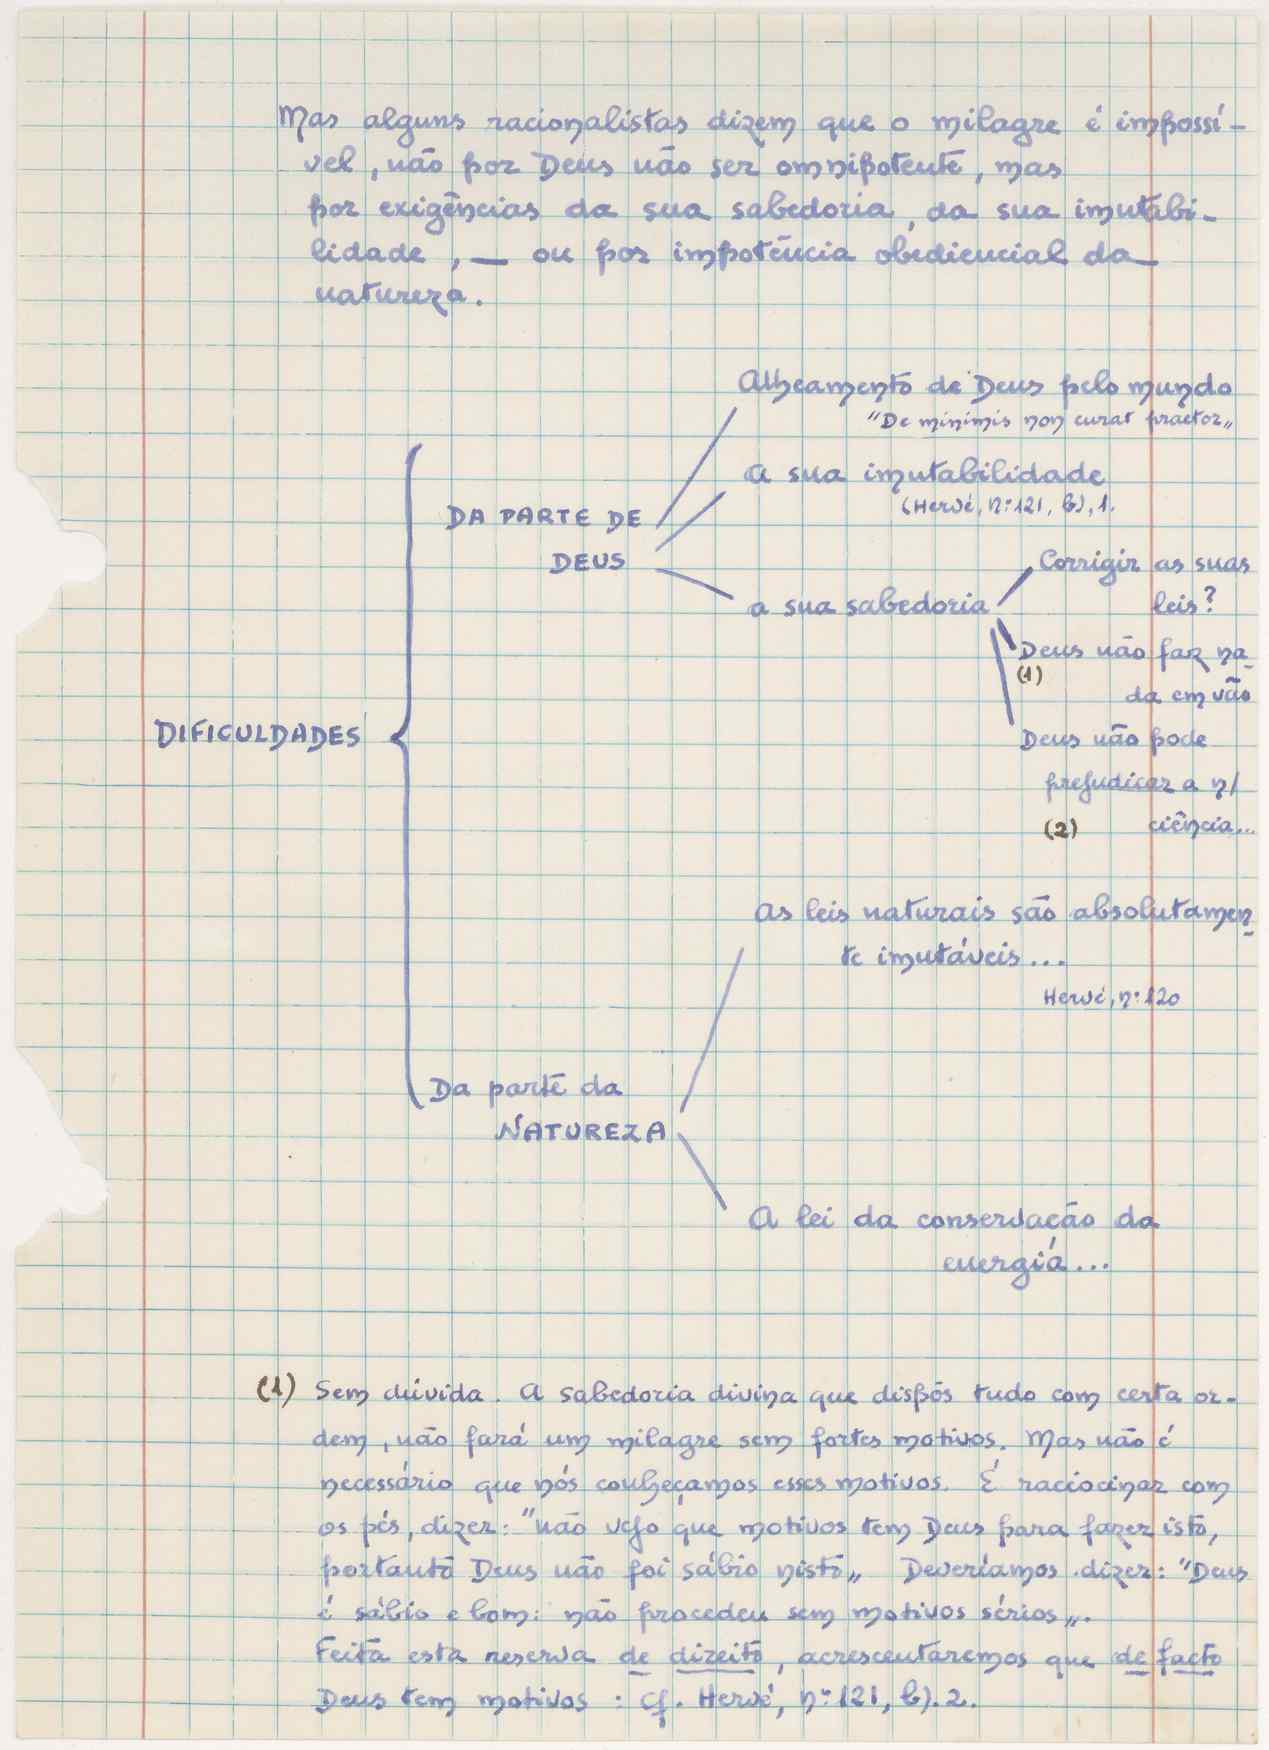 Mas alguns racionalistas dizem que o milagre é impossí-
vel, não por Deus não ser omnipotente, mas
por exigências da sua sabedoria, da sua imutabi-
lidade, — ou por impotência obediencial da
natureza.
Alheamento de Deus pelo mundo
"De minimis non curat praetor„
A sua imutabilidade
(Hervé, nº 121, b), 1.
DA PARTE DE
DEUS
Corrigir as suas
leis?
a sua sabedoria
Deus não faz na-
(1)
da em vão
DIFICULDADES
Deus não pode
prejudicar a n/
(2) ciência...
As leis naturais são absolutamen-
te imutáveis...
Hervé, nº 120
Da parte da
NATUREZA
A lei da conservação da
energia...
(1) Sem dúvida. A sabedoria divina que dispôs tudo com certa or-
dem, não fará um milagre sem fortes motivos. Mas não é
necessário que nós conheçamos esses motivos. É raciocinar com
os pés, dizer: "não vejo que motivos tem Deus para fazer isto,
portanto Deus não foi sábio nisto„ Deveríamos dizer: "Deus
é sábio e bom: não procedeu sem motivos sérios„.
Feita esta reserva de direito, acrescentaremos que de facto
Deus tem motivos: cf. Hervé, nº 121, b). 2.